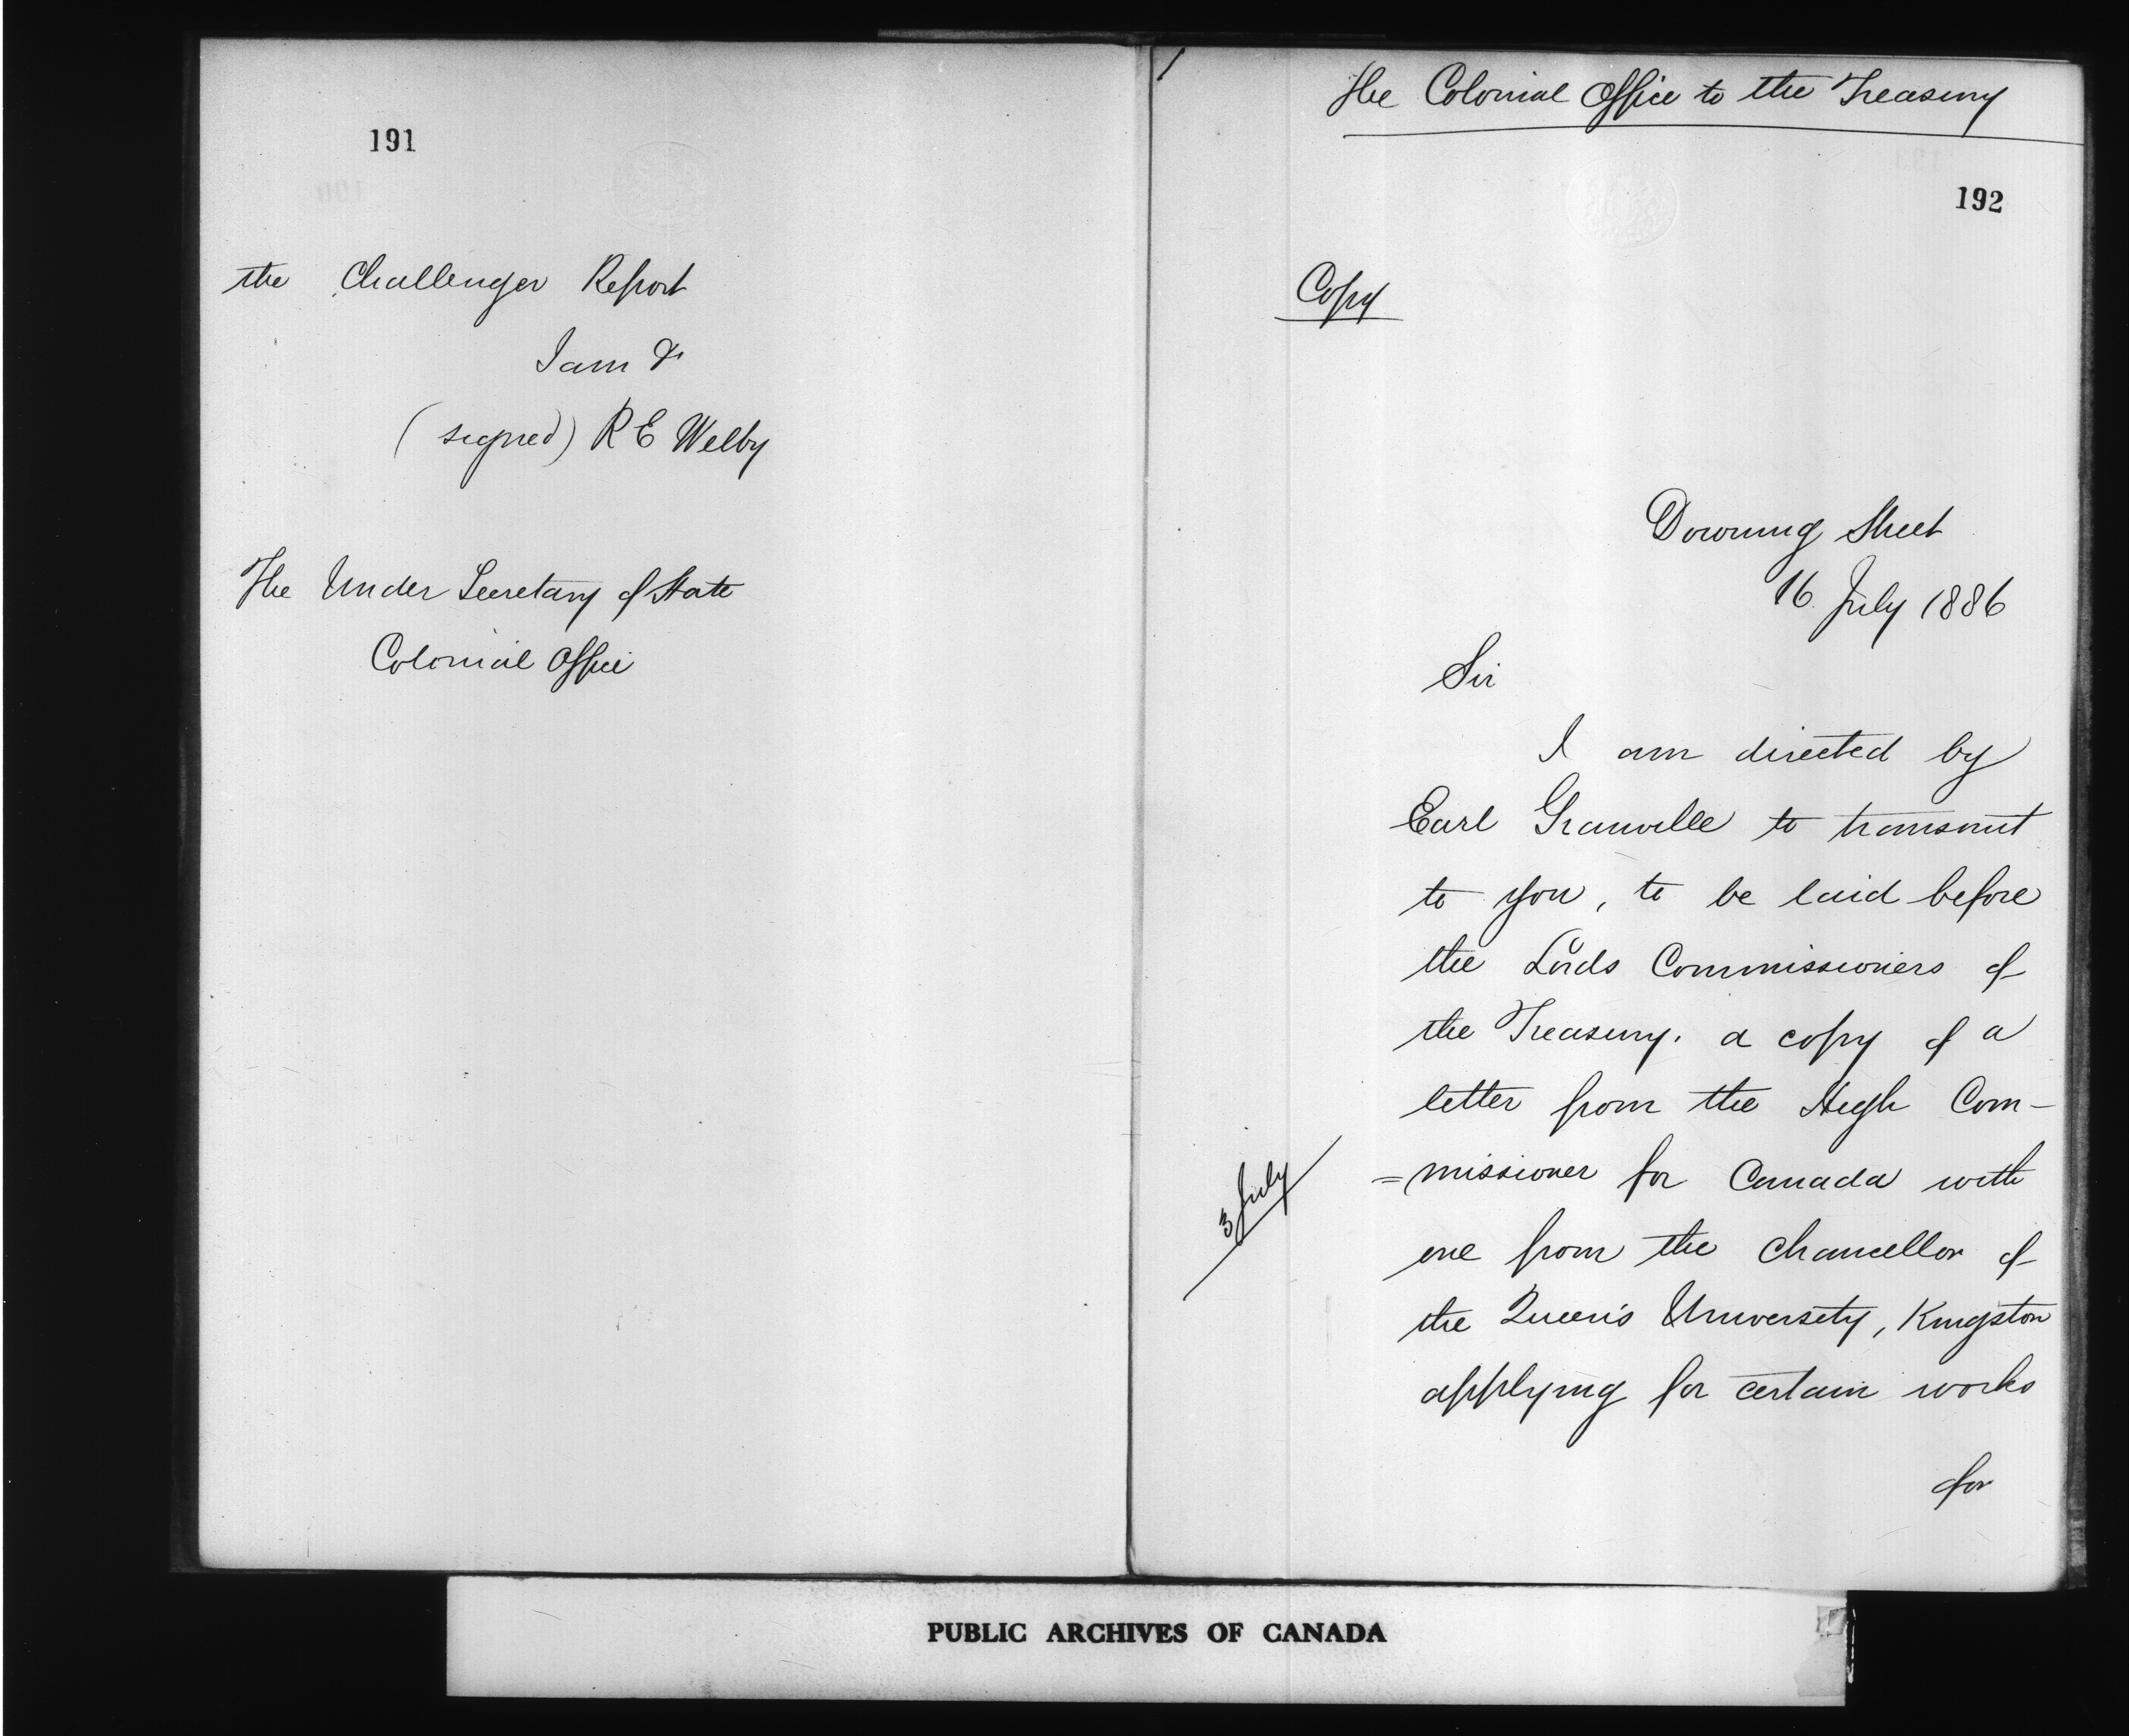 191
the Challenger Report
I am &
(signed) R E Welby
The Under Secretary of State
Colonial Office
The Colonial Office to the Treasury
192
Copy
Downing Street
16 July 1886
Sir
I am directed by
Earl Granville to transmit
to you, to be laid before
the Lords Commissioners of
the Treasury, a copy of a
letter from the High Com-
3 July
=missioner for Canada with
one from the Chancellor of
the Queen's University, Kingston
applying for certain works
for
PUBLIC ARCHIVES OF CANADA